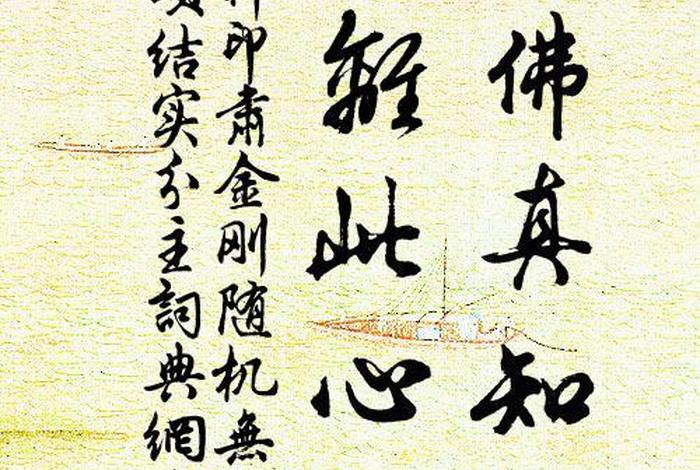 佛真知
離此心
印肃金刚随机無
结实分主詞典網